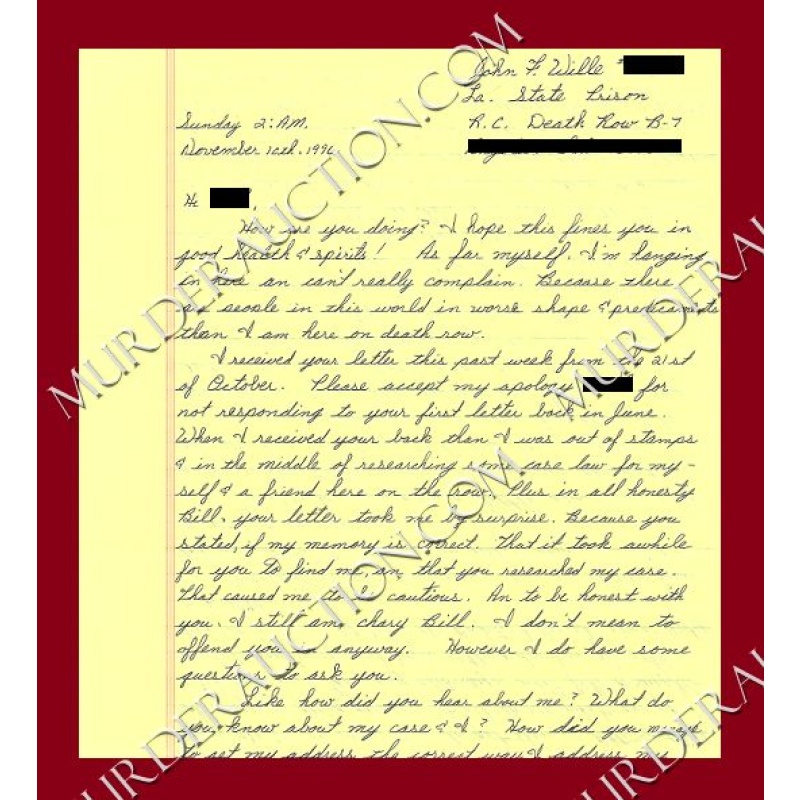 John F. Wille #
La. State Prison
Sunday 2: A.M.
R.C. Death Row B-7
November 10th. 1996
Hi ,
How are you doing? I hope this fines you in
good health & spirits! As far myself. I'm hanging
in here an can't really complain. Because there
are people in this world in worse shape & predicaments
than I am here on death row.
I received your letter this past week from the 21st
of October. Please accept my apology for
not responding to your first letter back in June.
When I received your back than I was out of stamps
& in the middle of researching some case law for my-
self & a friend here on the row. Plus in all honesty
Bill, your letter took me by surprise. Because you
stated, if my memory is correct. That it took awhile
for you to find me, an that you researched my case.
That caused me to be cautious. An to be honest with
you. I still am chary Bill. I don't mean to
offend you in anyway. However I do have some
questions to ask you.
Like how did you hear about me? What do
you know about my case & I? How did you manage
to get my address the correct way I address my
MURDERAUCTION.COM
MURDERAUCTION.COM
MURDERAUCTION.COM
MURDERAU
MURDERAU
MURDERAU